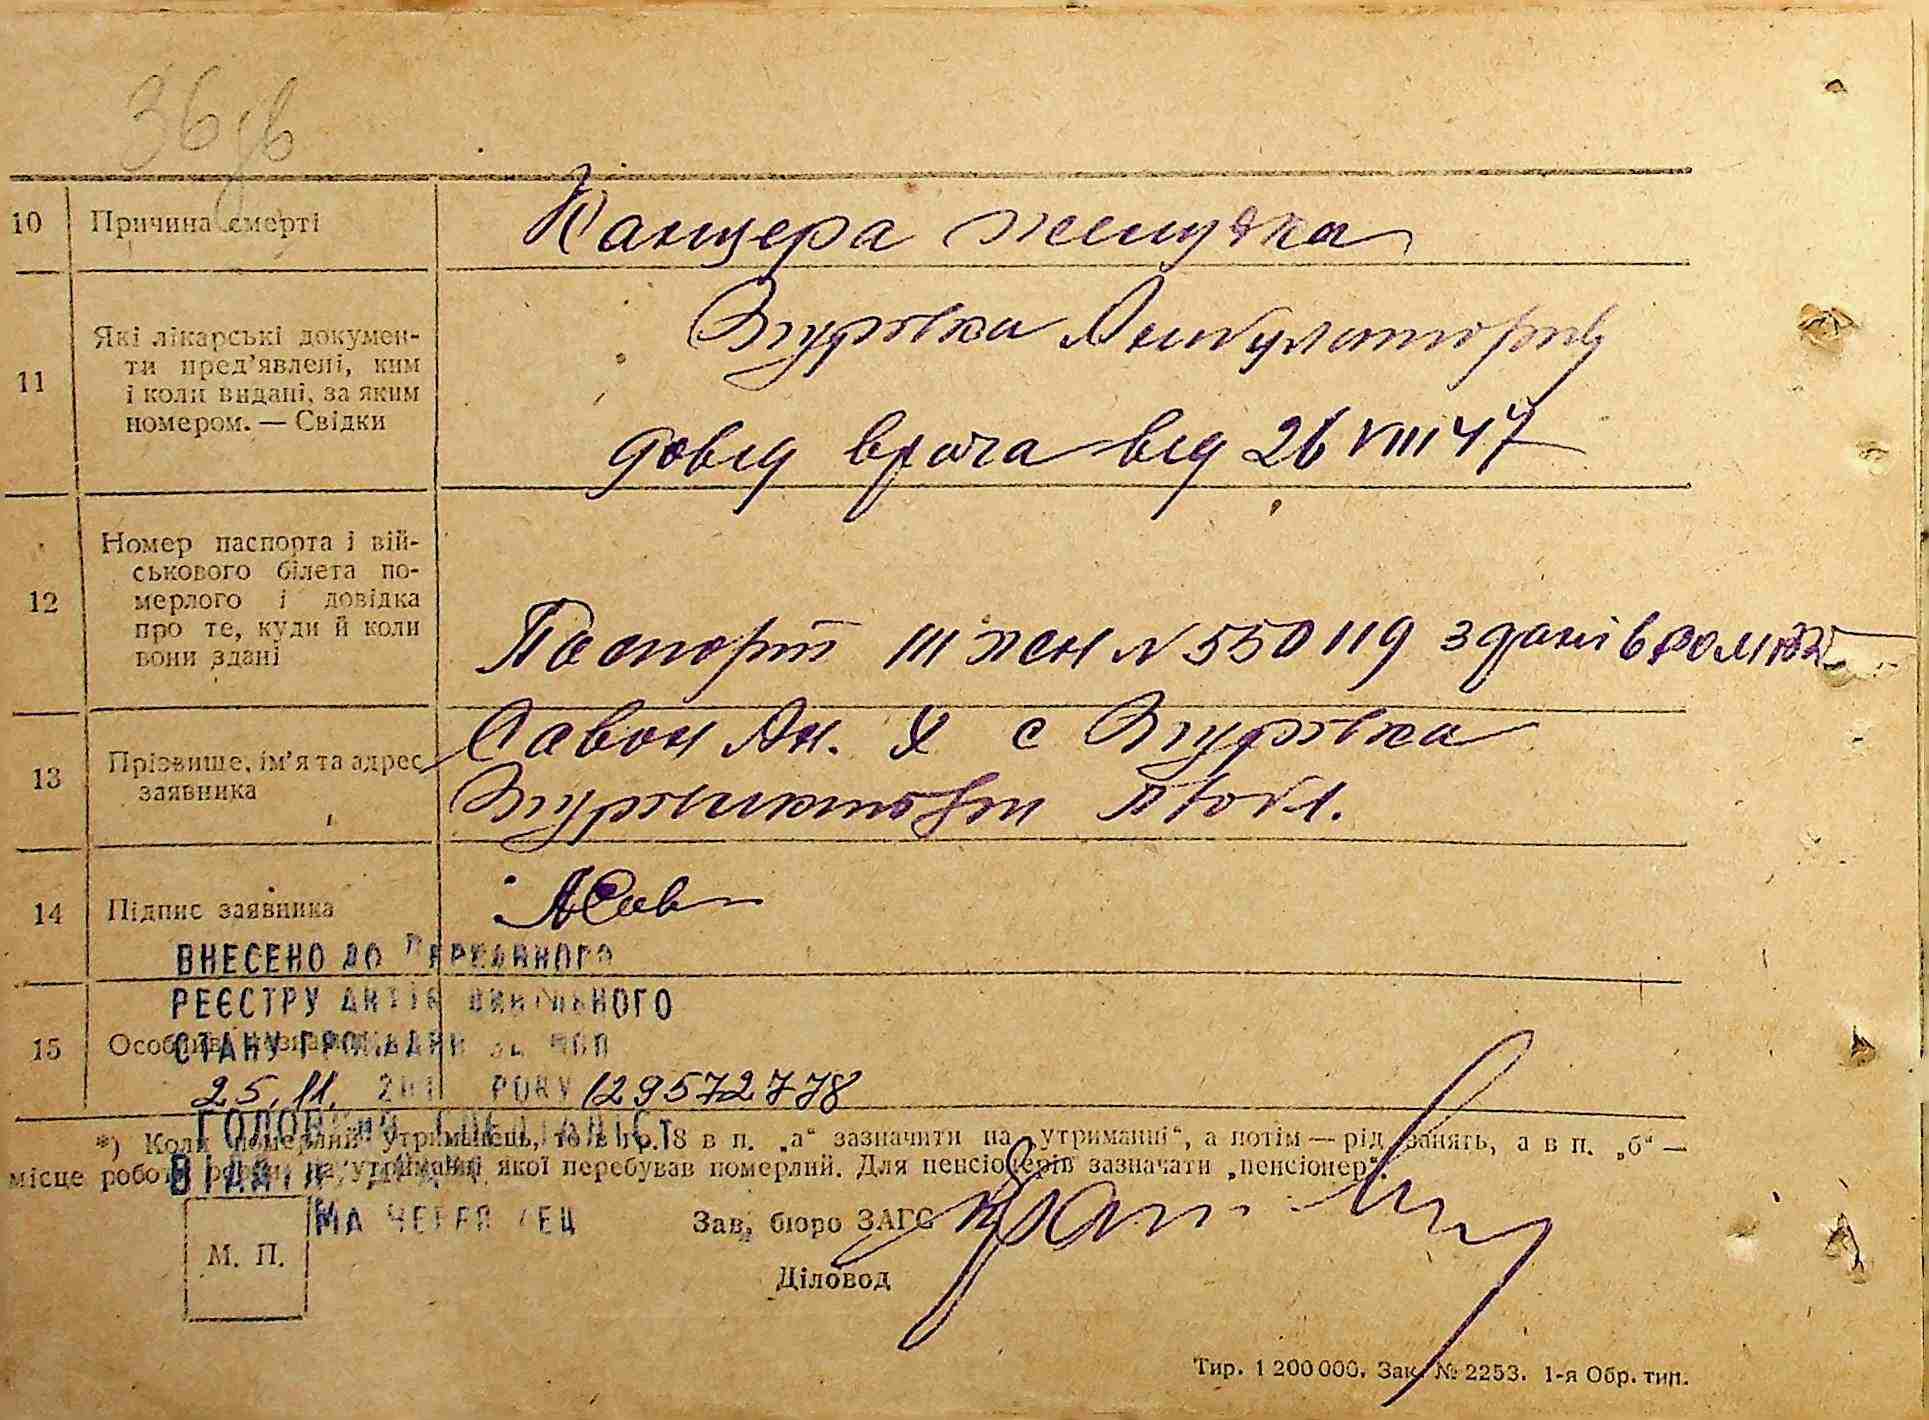 10 Причина смерті Канцера желудка
11 Які лікарські докумен-
ти пред'явлені, ким
і коли видані, за яким
номером. — Свідки
Згурівка Амбулаторія
довід врача від 26 VIII 47
12 Номер паспорта і вій-
ськового білета по-
мерлого і довідка
про те, куди й коли
вони здані
Паспорт III № 550119 здані в
13 Прізвище, ім'я та адрес
заявника
Савон Ян. Х с Згурівка
обл.
14 Підпис заявника АСав
ВНЕСЕНО ДО ДЕРЖАВНОГО
РЕЄСТРУ АКТІВ ЦИВІЛЬНОГО
СТАНУ ГРОМАДЯН ЗА №
15
25.11. РОКУ 129572778
ГОЛОВНИЙ СПЕЦІАЛІСТ
*) Коли померлий утриманець, то в гр. 8 в п. „а“ зазначити на „утриманні“, а потім — рід занять, а в п. „б“ —
місце роботи на утриманні якої перебував померлий. Для пенсіонерів зазначати „пенсіонер“.
Зав. бюро ЗАГС
М. П.
Діловод
Тир. 1 200 000. Зак. № 2253. 1-я Обр. тип.